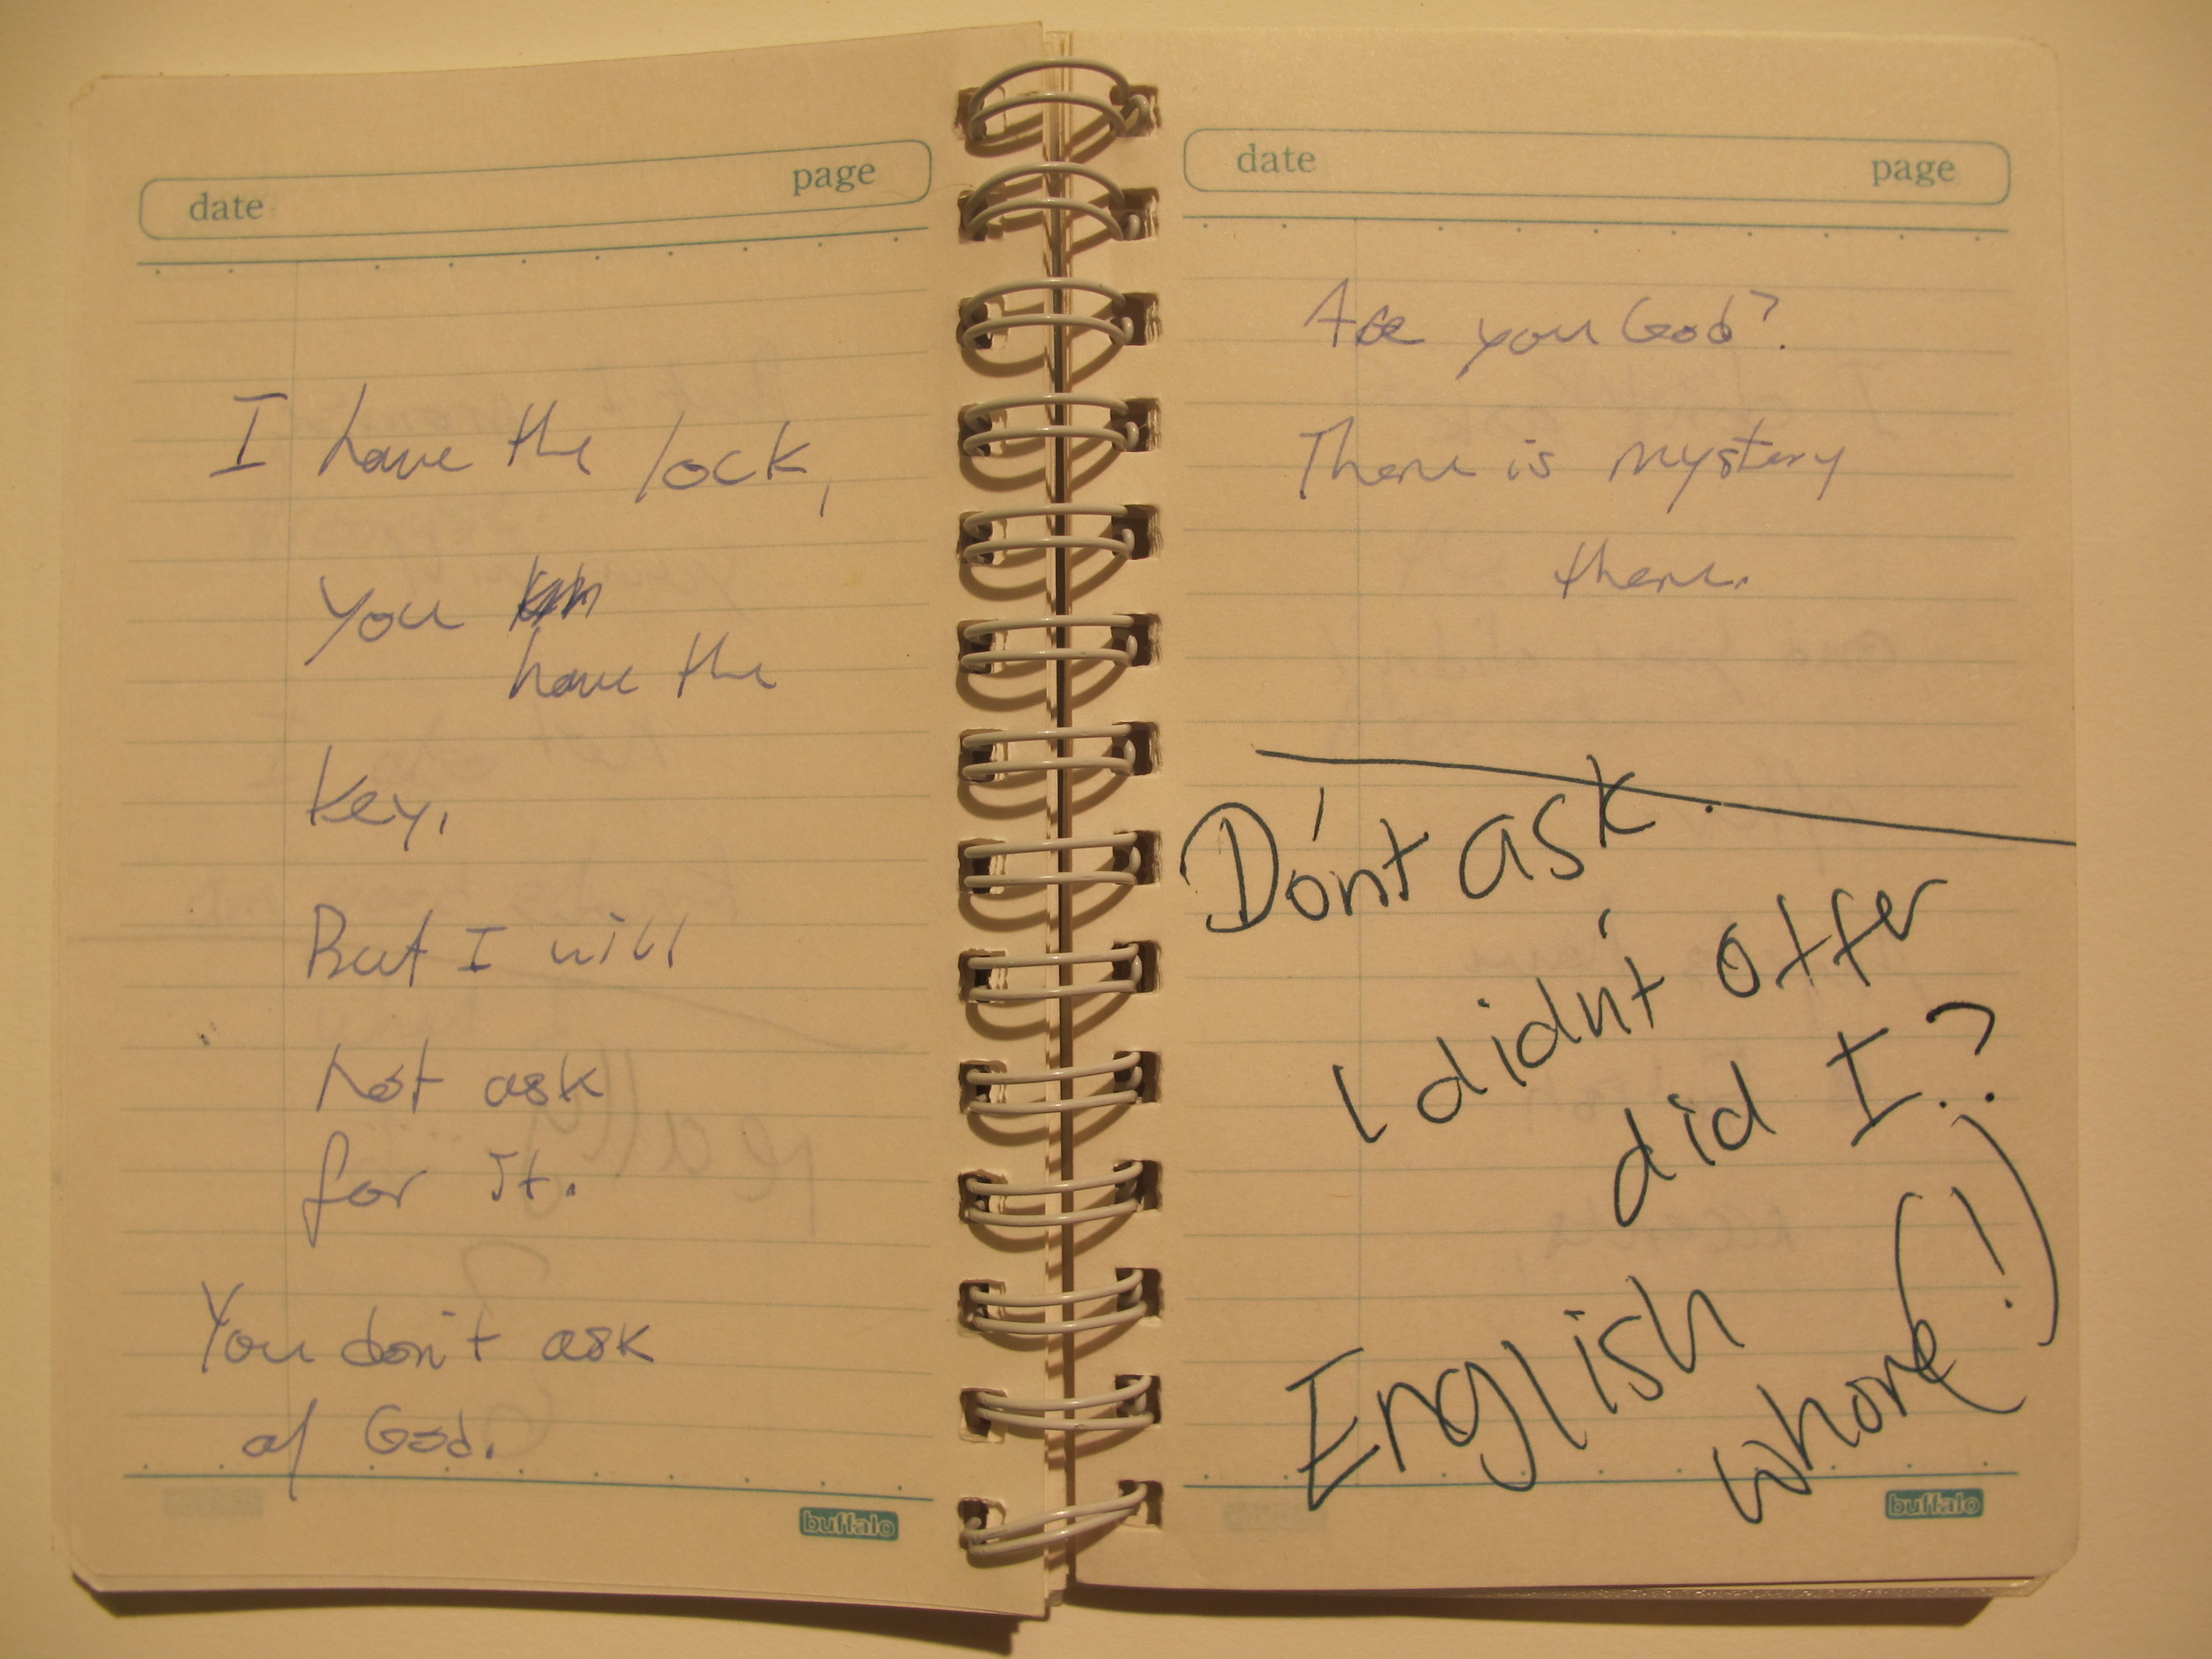 date page
I have the lock,
you
have the
key,
But I will
not ask
for it.
You don't ask
of God.
buffalo
date page
Are you God?
There is mystery
there.
Don't ask.
I didn't offer
did I?
English
whore(!)
buffalo